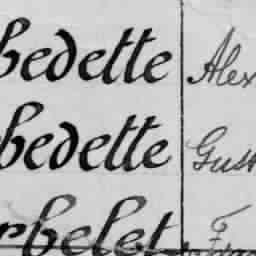 bedette Alex
bedette Gust
rbelet Fran